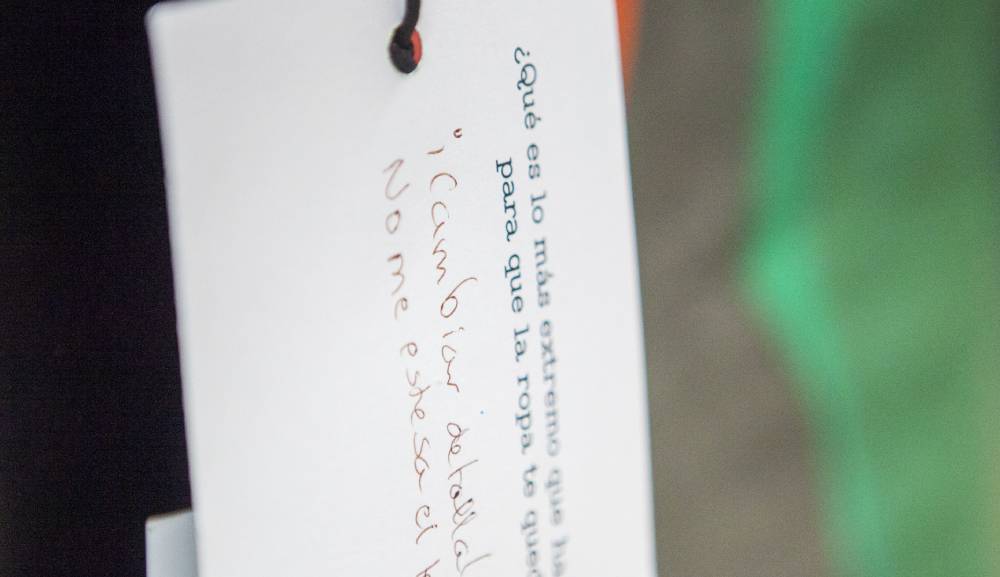 ¿Qué es lo más extremo que ha
para que la ropa te qued
"¡Cambiar de talla
No me estesa el